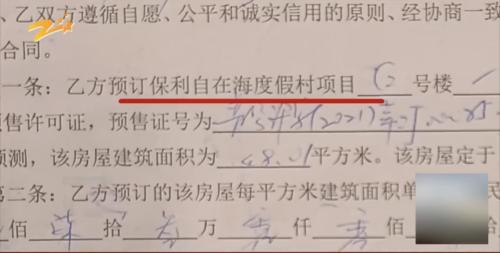 、乙双方遵循自愿、公平和诚实信用的原则、经协商一致
合同。
一条：乙方预订保利自在海度假村项目 6 号楼
预售许可证，预售证号为
预测，该房屋建筑面积为 48.01 平方米。该房屋定于
第二条：乙方预订的该房屋每平方米建筑面积单 民
佰 柒 拾 叁 万 仟 佰 拾